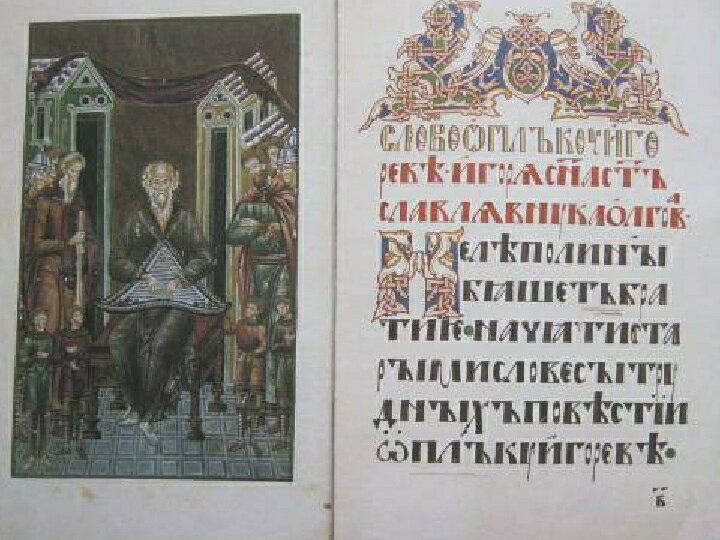 СЛОВО Ѿ ПЛЪКОУ ИГО
РЕВѢ· ИГОРѦ СН҃А СТЪ
СЛАВЛѦ ВНУКА ОЛГОВ
НЕ ЛѢПО ЛИ НЫ
БѦШЕТЬ БРА
ТИЕ· НАЧѦТИ СТА
РЫМИ СЛОВЕСЫ ТРУ
ДНЫХЪ ПОВѢСТИИ
Ѿ ПЛЪКУ ИГОРЕВѢ·
в҃